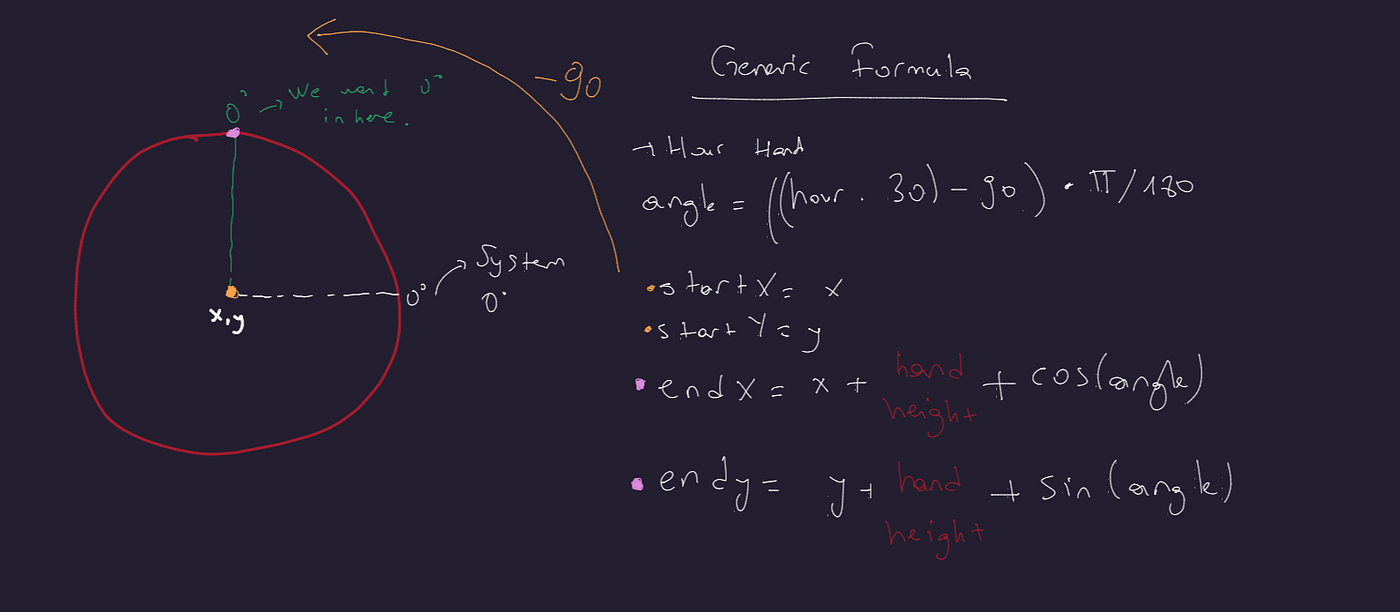 -90
0° → We want 0°
in here.
x,y
0° → System
0°
Generic Formula
→ Hour Hand
angle = ((hour . 30) - 90) · π/180
• startX = x
• startY = y
• endX = x + hand height + cos(angle)
• endy = y + hand height + sin(angle)